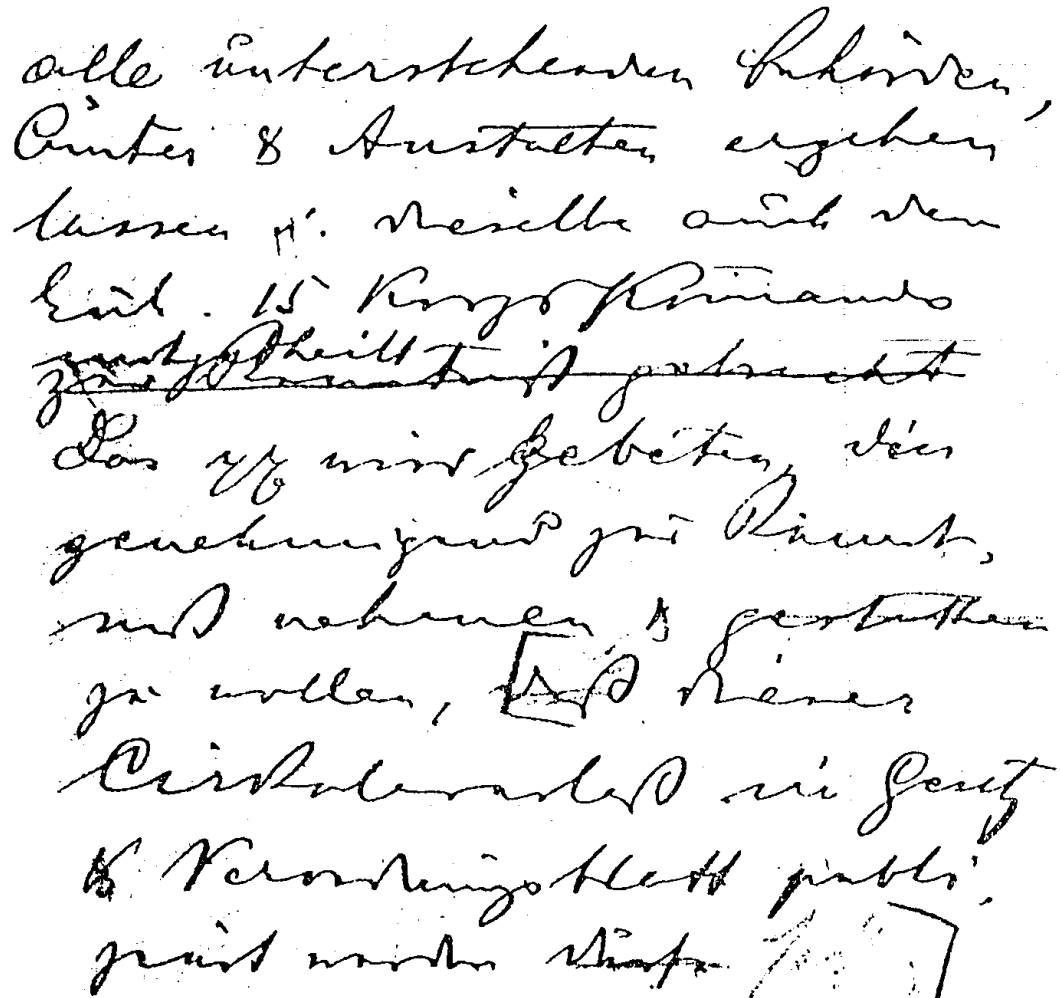 alle unterstehenden Behörden,
Ämter & Anstalten ergehen
lassen u. dieselbe auch dem
Löbl. 15 Korps Kommando
mitgetheilt
zur Kenntniß gebracht
Das wird gebeten, dies
genehmigend zur Kennt-
niß nehmen & gestatten
zu wollen, daß dieser
Cirkularerlaß im Gesetz
& Verordnungsblatt publi-
zirt werden dürfe